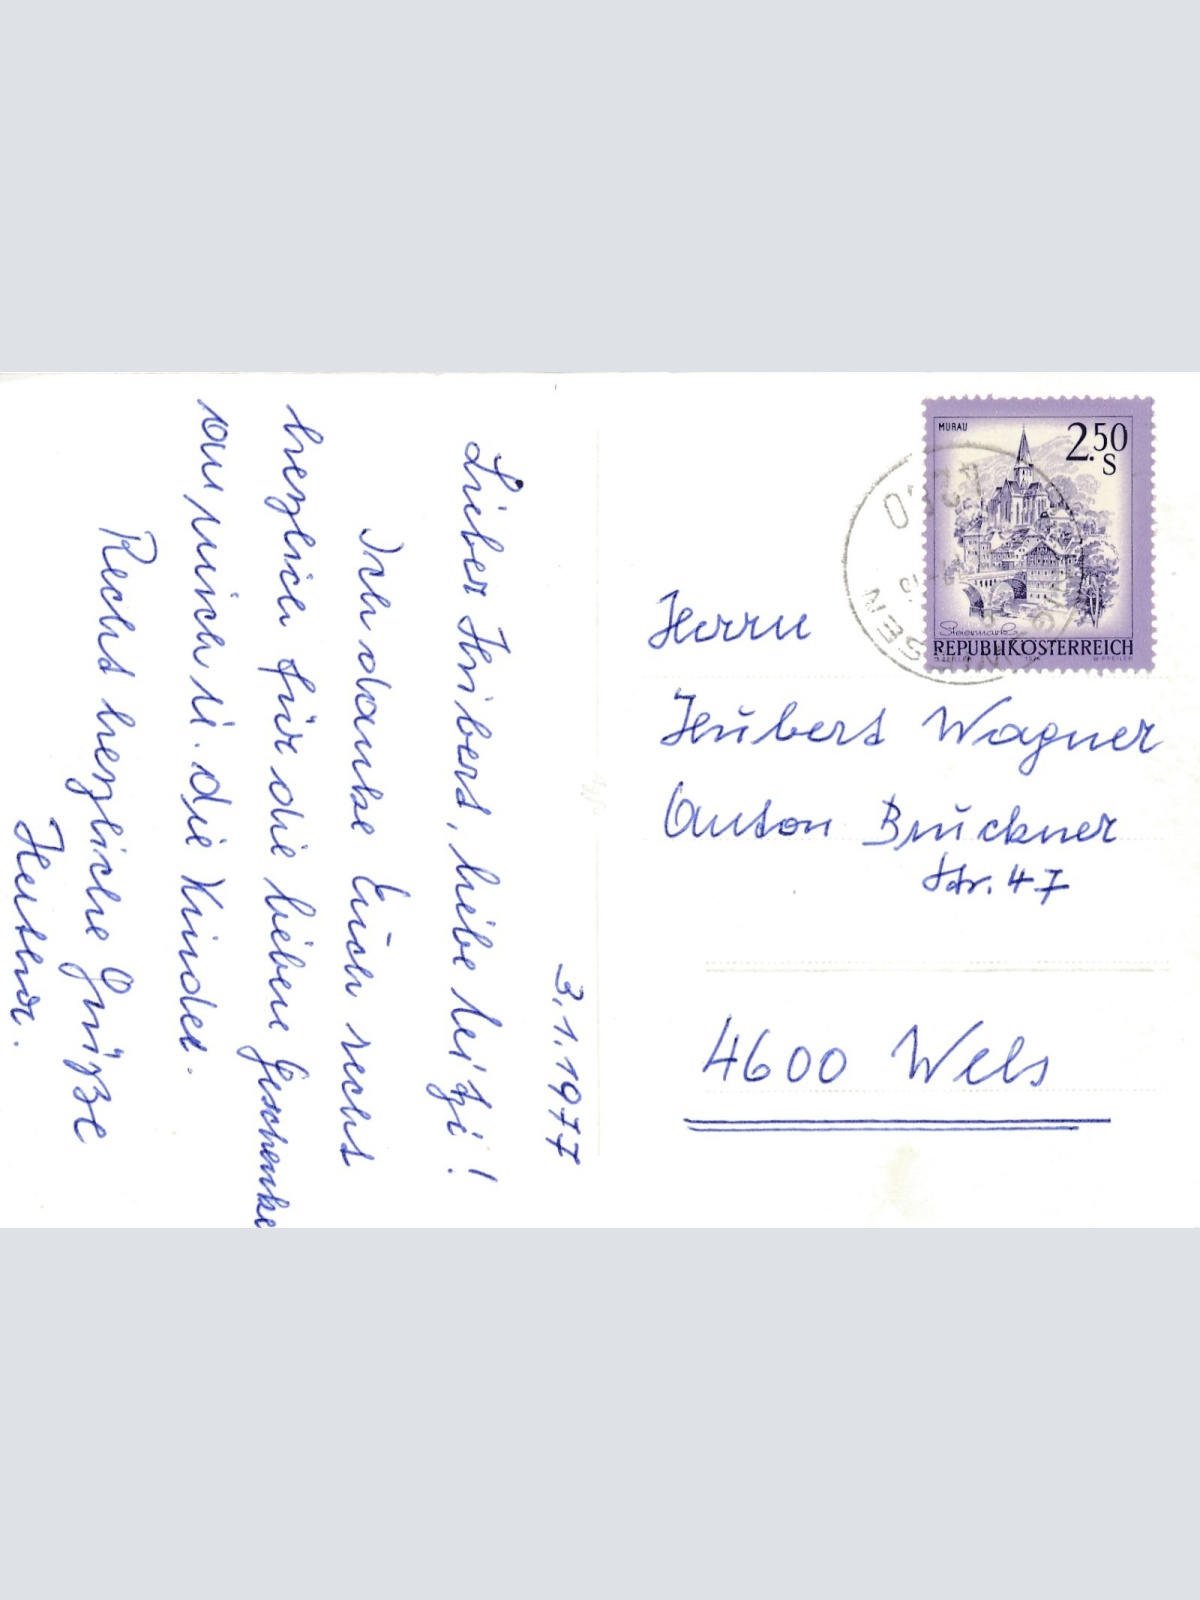 3.1.1977
Lieber Hubert, liebe Leizi!
Ich danke Euch recht
herzlich für die lieben Geschenke
an mich u. die Kinder.
Recht herzliche Grüße
MURAU
2.50
S
Steiermark
REPUBLIK ÖSTERREICH
Herrn
Hubert Wagner
Anton Bruckner
Str. 47
4600 Wels